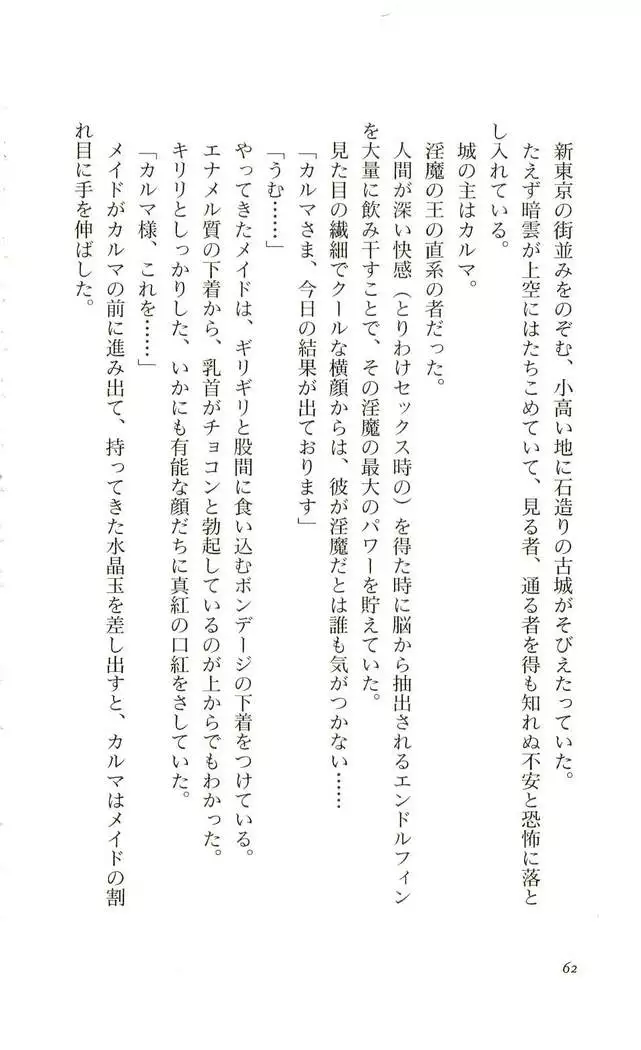 新東京の街並みをのぞむ、小高い地に石造りの古城がそびえたっていた。
たえず暗雲が上空にはたちこめていて、見る者、通る者を得も知れぬ不安と恐怖に落と
し入れている。
城の主はカルマ。
淫魔の王の直系の者だった。
人間が深い快感（とりわけセックス時の）を得た時に脳から抽出されるエンドルフィン
を大量に飲み干すことで、その淫魔の最大のパワーを貯えていた。
見た目の繊細でクールな横顔からは、彼が淫魔だとは誰も気がつかない……
「カルマさま、今日の結果が出ております」
「うむ……」
やってきたメイドは、ギリギリと股間に食い込むボンデージの下着をつけている。
エナメル質の下着から、乳首がチョコンと勃起しているのが上からでもわかった。
キリリとしっかりした、いかにも有能な顔だちに真紅の口紅をさしていた。
「カルマ様、これを……」
メイドがカルマの前に進み出て、持ってきた水晶玉を差し出すと、カルマはメイドの割
れ目に手を伸ばした。
62